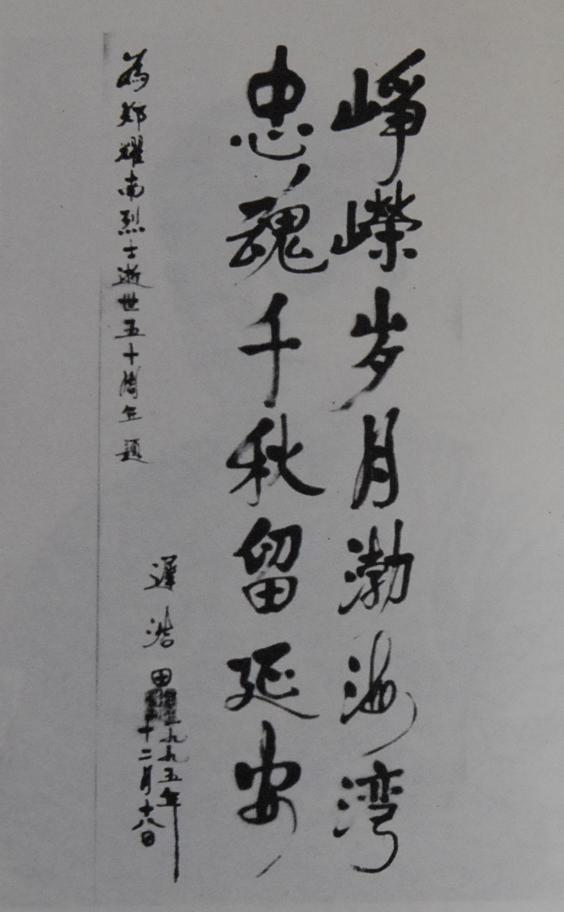 峥嵘岁月渤海湾
忠魂千秋留延安
为郑耀南烈士逝世五十周年题
迟浩田
一九九五年
十二月十八日